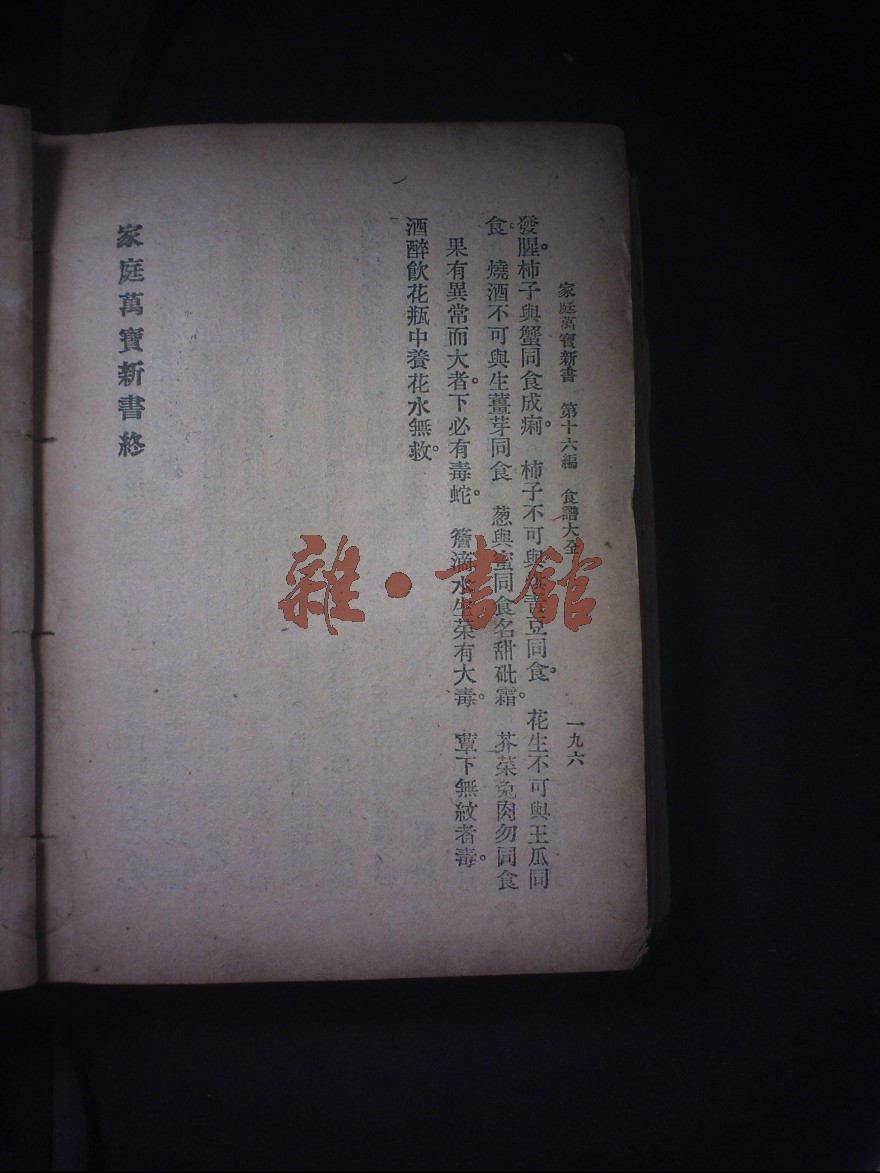 家庭萬寶新書 第十六編 食譜大全 一九六
發腥。柿子與蟹同食成痢。 柿子不可與 豆同食。 花生不可與王瓜同
食。 燒酒不可與生薑芽同食 葱與蜜同食名甜砒霜。 芥菜兔肉勿同食
果有異常而大者。下必有毒蛇。 簷滴水生菜有大毒。 蕈下無紋者毒。
酒醉飲花瓶中養花水無救。
家庭萬寶新書終
雜·書館